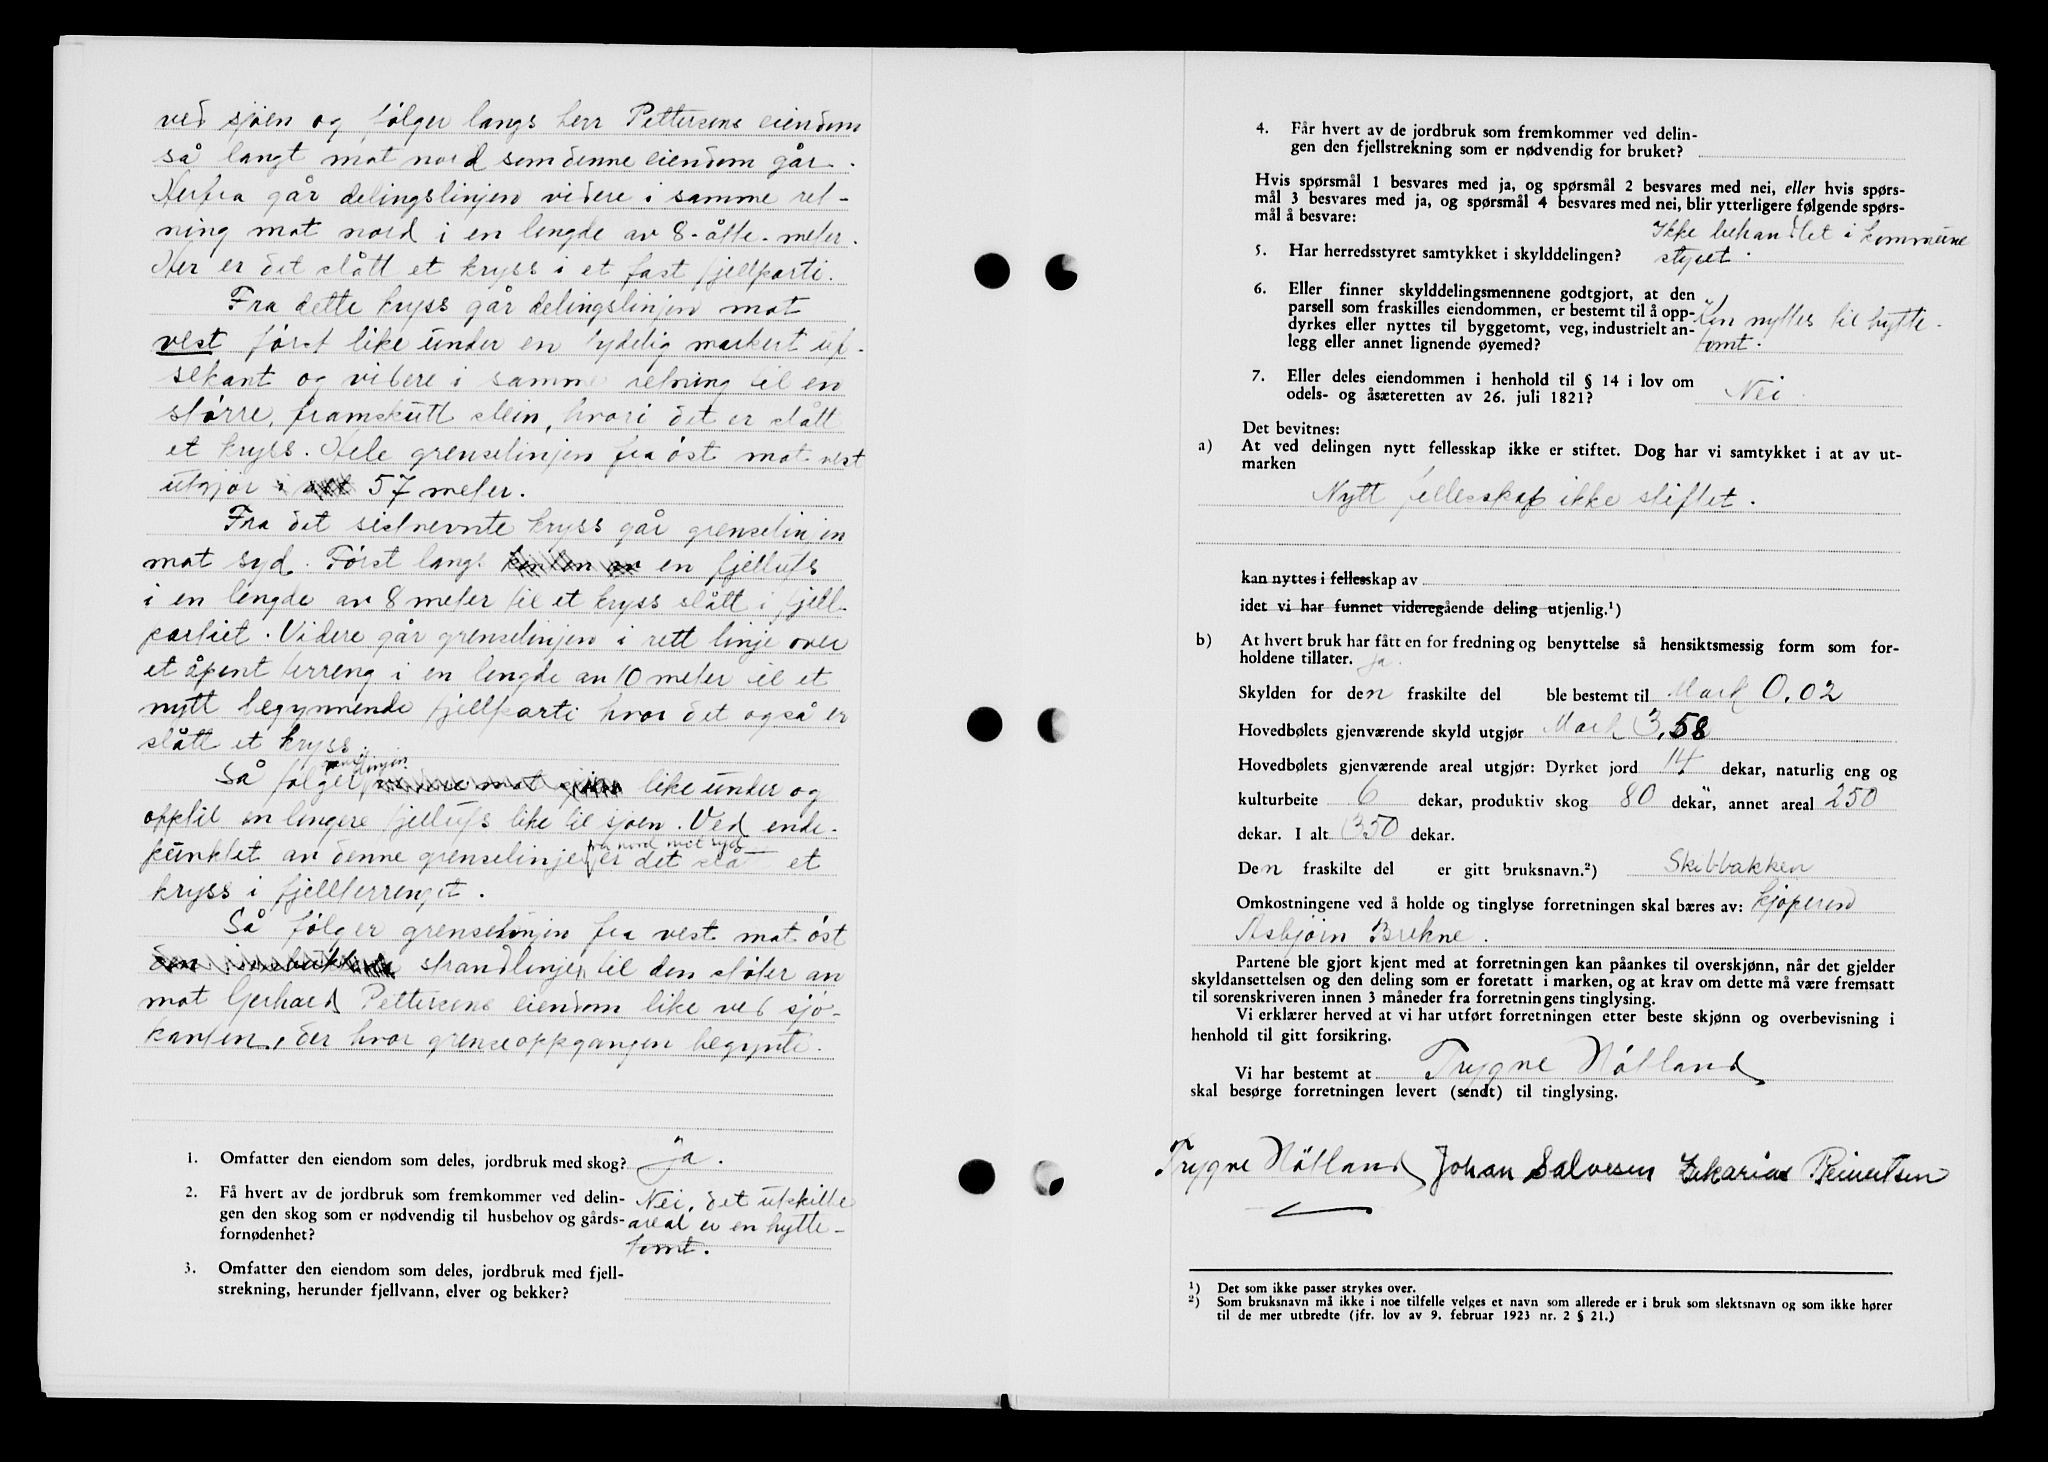 ved sjøen og følger langs herr Pettersens eiendom
så langt mot nord som denne eiendom går.
Herfra går delingslinjen videre i samme ret-
ning mot nord i en lengde av 8-åtte-meter.
Her er det slått et kryss i et fast fjellparti.
Fra dette kryss går delingslinjen mot
vest først like under en tydelig markert uf-
sekant og videre i samme retning til en
større, framskutt stein, hvori det er slått
et kryss. Hele grenselinjen fra øst mot vest
utgjør i alt 57 meter.
Fra det sistnevnte kryss går grenselinjen
mot syd. Først langs kanten av en fjellufs
i en lengde av 8 meter til et kryss slått i fjell-
partiet. Videre går grenselinjen i rett linje over
et åpent terreng i en lengde av 10 meter til et
nytt begynnende fjellparti hvor det også er
slått et kryss.
Så følger linjen videre mot sjøen like under og
opptil en lengere fjellufs like til sjøen. Ved ende-
punktet av denne grenselinjen fra nord mot syd er det slått et
kryss i fjellterrenget.
Så følger grenselinjen fra vest mot øst
strandlinjen til den støter an
mot Gerhard Pettersens eiendom like ved sjø-
kanten, der hvor grenseoppgangen begynte.
1. Omfatter den eiendom som deles, jordbruk med skog? Ja.
2. Få hvert av de jordbruk som fremkommer ved delin-
gen den skog som er nødvendig til husbehov og gårds-
fornødenhet? Nei, det utskilte
areal er en hytte-
tomt.
3. Omfatter den eiendom som deles, jordbruk med fjell-
strekning, herunder fjellvann, elver og bekker?
4. Får hvert av de jordbruk som fremkommer ved delin-
gen den fjellstrekning som er nødvendig for bruket?
Hvis spørsmål 1 besvares med ja, og spørsmål 2 besvares med nei, eller hvis spørs-
mål 3 besvares med ja, og spørsmål 4 besvares med nei, blir ytterligere følgende spørs-
mål å besvare:
5. Har herredsstyret samtykket i skylddelingen? Ikke behandlet i kommune
styret.
6. Eller finner skylddelingsmennene godtgjort, at den
parsell som fraskilles eiendommen, er bestemt til å opp-
dyrkes eller nyttes til byggetomt, veg, industrielt an-
legg eller annet lignende øyemed? Kan nyttes til hytte-
tomt.
7. Eller deles eiendommen i henhold til § 14 i lov om
odels- og åsæteretten av 26. juli 1821? Nei
Det bevitnes:
a) At ved delingen nytt fellesskap ikke er stiftet. Dog har vi samtykket i at av ut-
marken
Nytt fellesskap ikke stiftet.
kan nyttes i fellesskap av
idet vi har funnet videregående deling utjenlig.¹)
b) At hvert bruk har fått en for fredning og benyttelse så hensiktsmessig form som for-
holdene tillater. Ja.
Skylden for den fraskilte del ble bestemt til Mark 0.02
Hovedbølets gjenværende skyld utgjør Mark 3,58
Hovedbølets gjenværende areal utgjør: Dyrket jord 14 dekar, naturlig eng og
kulturbeite 6 dekar, produktiv skog 80 dekar, annet areal 250
dekar. I alt 350 dekar.
Den fraskilte del er gitt bruksnavn.²) Skibbakken
Omkostningene ved å holde og tinglyse forretningen skal bæres av: kjøperen
Asbjørn Brekne.
Partene ble gjort kjent med at forretningen kan påankes til overskjønn, når det gjelder
skyldansettelsen og den deling som er foretatt i marken, og at krav om dette må være fremsatt
til sorenskriveren innen 3 måneder fra forretningens tinglysing.
Vi erklærer herved at vi har utført forretningen etter beste skjønn og overbevisning i
henhold til gitt forsikring.
Vi har bestemt at Trygve Nøtland
skal besørge forretningen levert (sendt) til tinglysing.
Trygve Nøtland Johan Salvesen Zakarias Reiertsen
¹) Det som ikke passer strykes over.
²) Som bruksnavn må ikke i noe tilfelle velges et navn som allerede er i bruk som slektsnavn og som ikke hører
til de mer utbredte (jfr. lov av 9. februar 1923 nr. 2 § 21.)